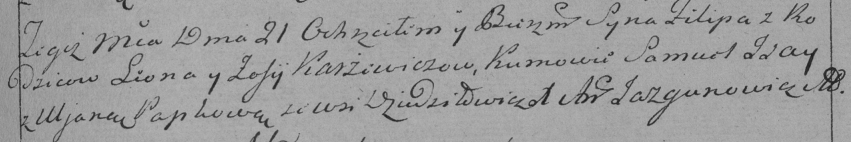 Tegoż Mca Dnia 21 Ochrzciłem y Bierzm Syna Filipa z Ro
dzicow Leona y Zofij Karżewiczow, Kumowie Samuel Isay
z Uljaną Papkową ze wsi Dziedziłowicz X Ant Jazgunowicz AD.